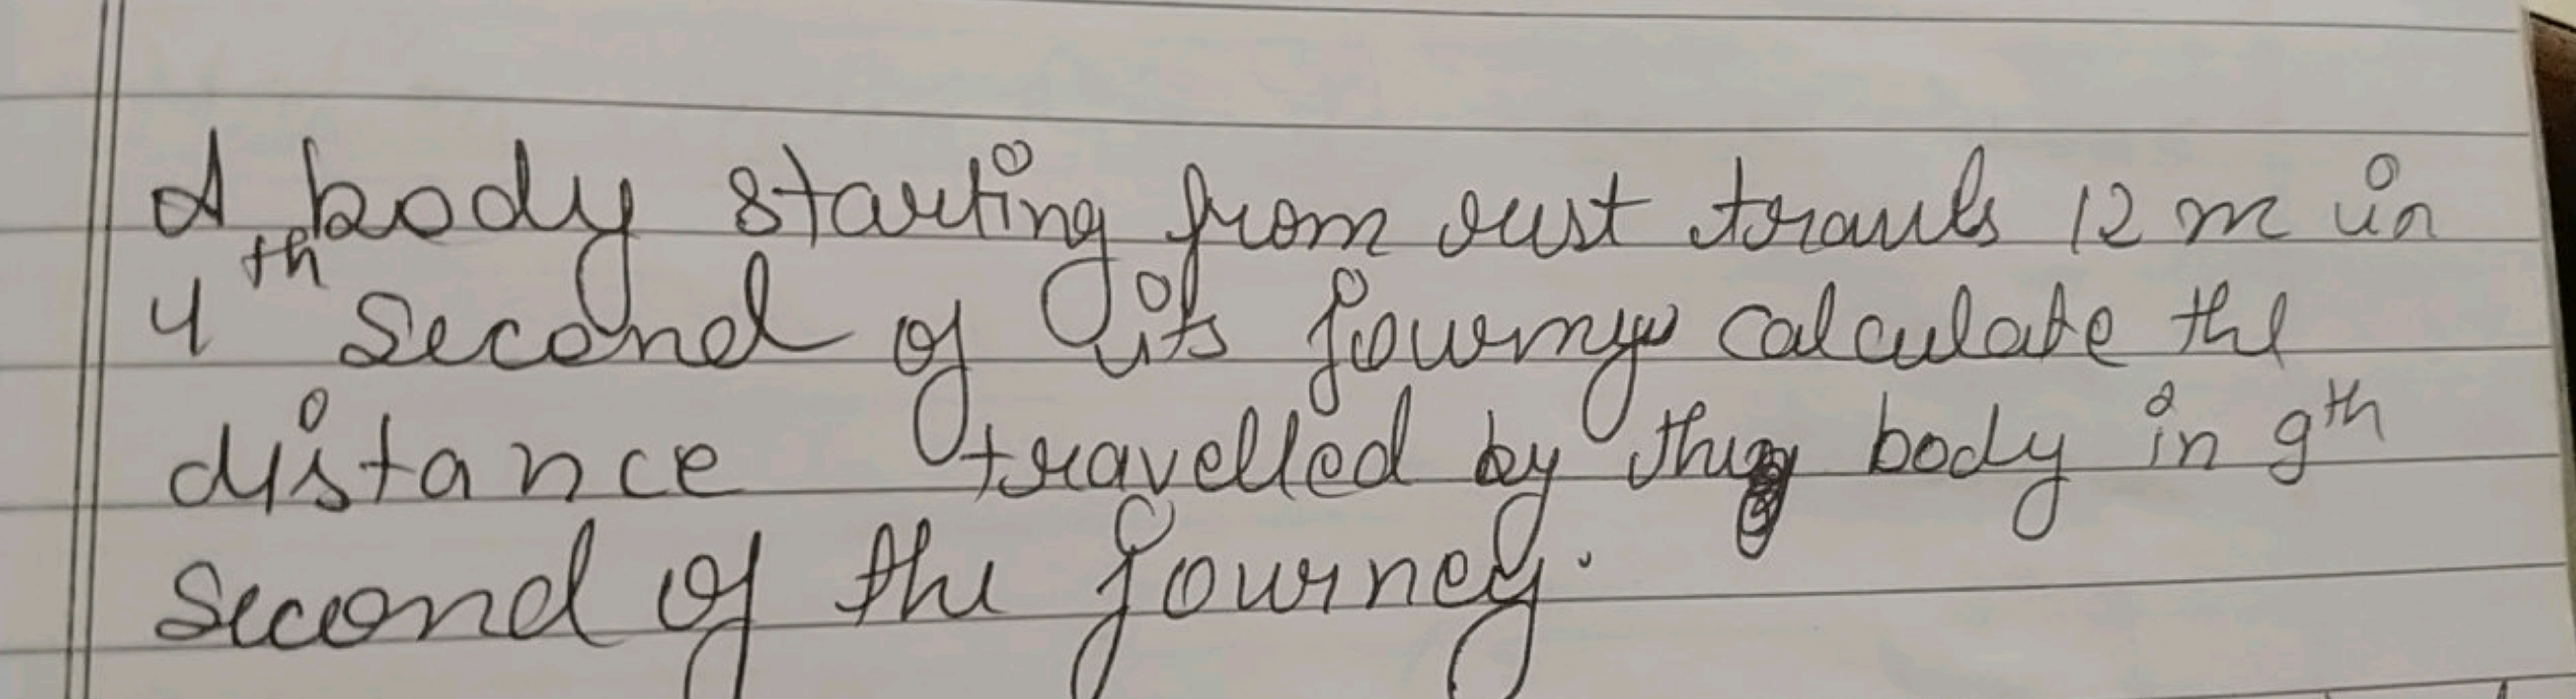 A body starting from rest travels 12 m in
4th Second of its journey calculate the
distance travelled by this body in 9th
Second of the journey.